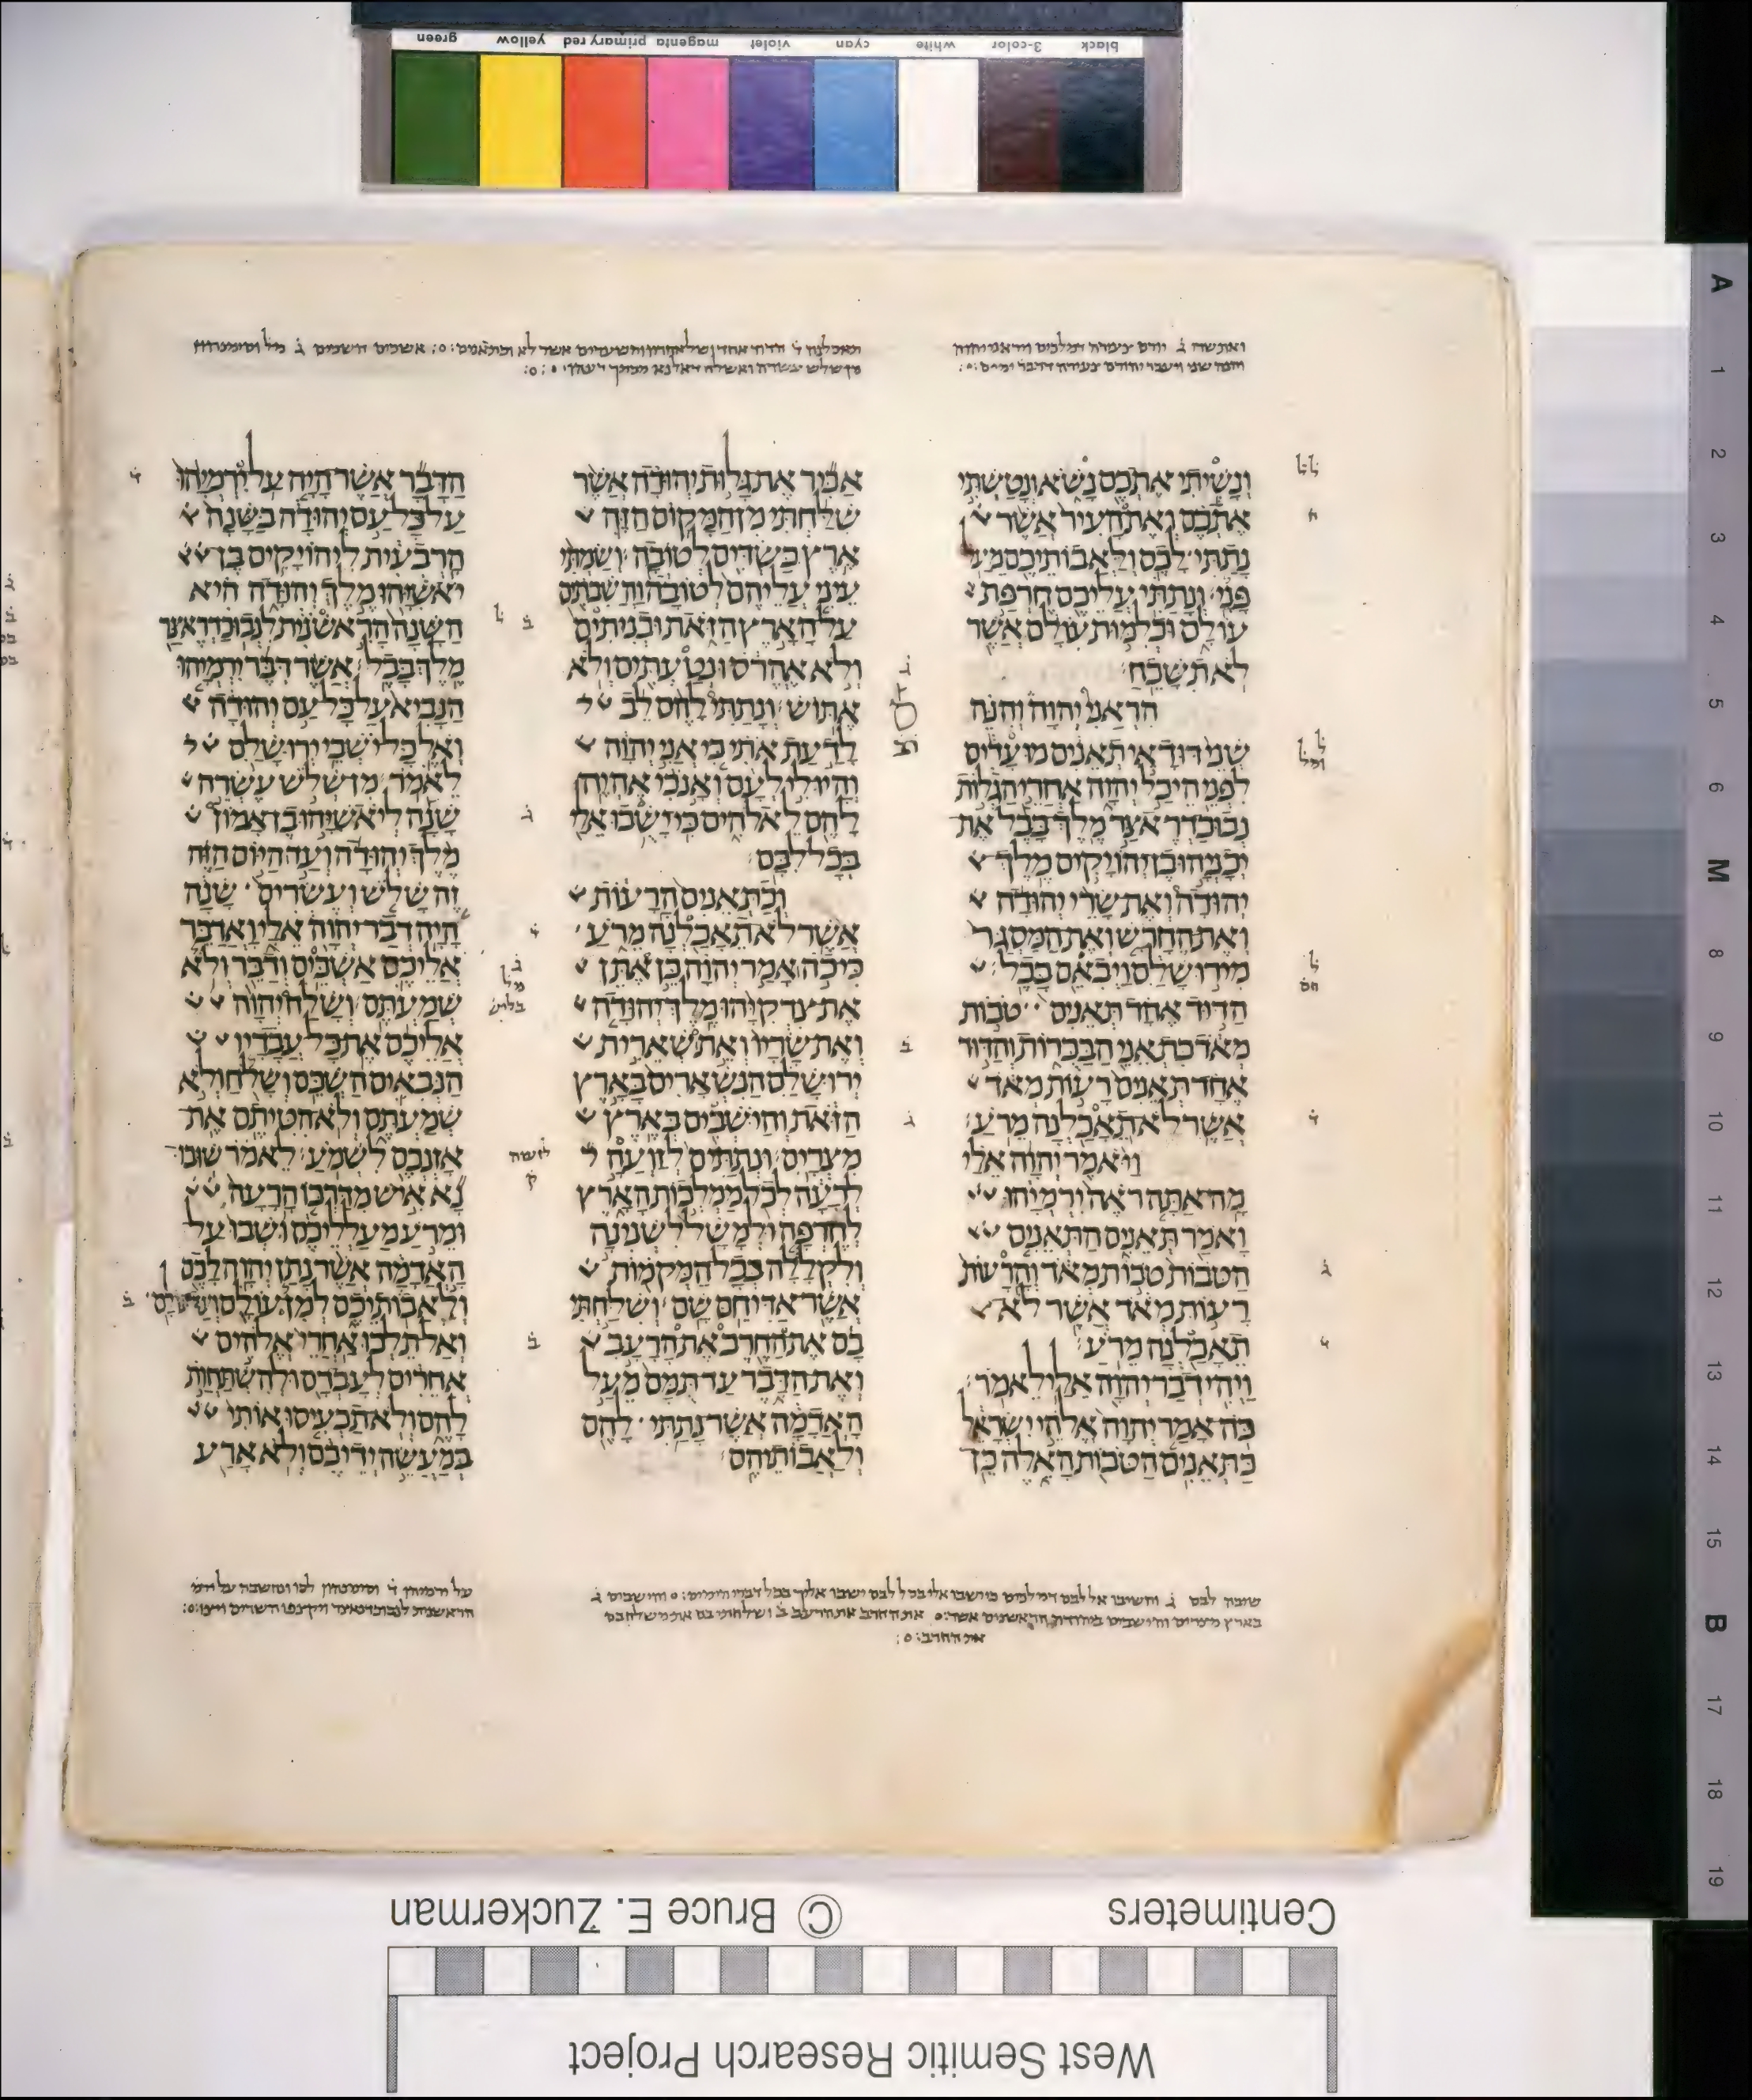 black 3-color white cyan violet magenta primary red yellow green
ונשיתי אתכם נשא ונטשתי
אתכם ואת העיר אשר
נתתי לכם ולאבותיכם מעל
פני ונתתי עליכם חרפת
עולם וכלמות עולם אשר
לא תשכח
הראני יהוה והנה
שני דודאי תאנים מועדים
לפני היכל יהוה אחרי הגלות
נבוכדראצר מלך בבל את
יכניהו בן יהויקים מלך
יהודה ואת שרי יהודה
ואת החרש ואת המסגר
מירושלם ויבאם בבל
הדוד אחד תאנים טבות
מאד כתאני הבכרות והדוד
אחד תאנים רעות מאד
אשר לא תאכלנה מרע
ויאמר יהוה אלי
מה אתה ראה ירמיהו
ואמר תאנים התאנים
הטבות טבות מאד והרעות
רעות מאד אשר לא
תאכלנה מרע
ויהי דבר יהוה אלי לאמר
כה אמר יהוה אלהי ישראל
כתאנים הטבות האלה כן
אכיר את גלות יהודה אשר
שלחתי מן המקום הזה
ארץ כשדים לטובה ושמתי
עיני עליהם לטובה והשבתים
על הארץ הזאת ובניתים
ולא אהרס ונטעתים ולא
אתוש ונתתי להם לב
לדעת אתי כי אני יהוה
והיו לי לעם ואנכי אהיה
להם לאלהים כי ישבו אלי
בכל לבם
וכתאנים הרעות
אשר לא תאכלנה מרע
כי כה אמר יהוה כן אתן
את צדקיהו מלך יהודה
ואת שריו ואת שארית
ירושלם הנשארים בארץ
הזאת והישבים בארץ
מצרים ונתתים לזועה
לרעה לכל ממלכות הארץ
לחרפה ולמשל לשנינה
ולקללה בכל המקמות
אשר אדיחם שם ושלחתי
בם את החרב את הרעב
ואת הדבר עד תמם מעל
האדמה אשר נתתי להם
ולאבותיהם
הדבר אשר היה על ירמיהו
על כל עם יהודה בשנה
הרבעית ליהויקים בן
יאשיהו מלך יהודה היא
השנה הראשנית לנבוכדראצר
מלך בבל אשר דבר ירמיהו
הנביא על כל עם יהודה
ואל כל ישבי ירושלם
לאמר מן שלש עשרה
שנה ליאשיהו בן אמון
מלך יהודה ועד היום הזה
זה שלש ועשרים שנה
היה דבר יהוה אלי ואדבר
אליכם אשכים ודבר ולא
שמעתם ושלח יהוה
אליכם את כל עבדיו
הנבאים השכם ושלח ולא
שמעתם ולא הטיתם את
אזנכם לשמע לאמר שובו
נא איש מדרכו הרעה
ומרע מעלליכם ושבו על
האדמה אשר נתן יהוה לכם
ולאבותיכם למן עולם ועד עולם
ואל תלכו אחרי אלהים
אחרים לעבדם ולהשתחות
להם ולא תכעיסו אותי
במעשה ידיכם ולא ארע
A
1
2
3
4
5
6
M
8
9
10
11
12
13
14
15
B
17
18
19
Centimeters
© Bruce E. Zuckerman
West Semitic Research Project